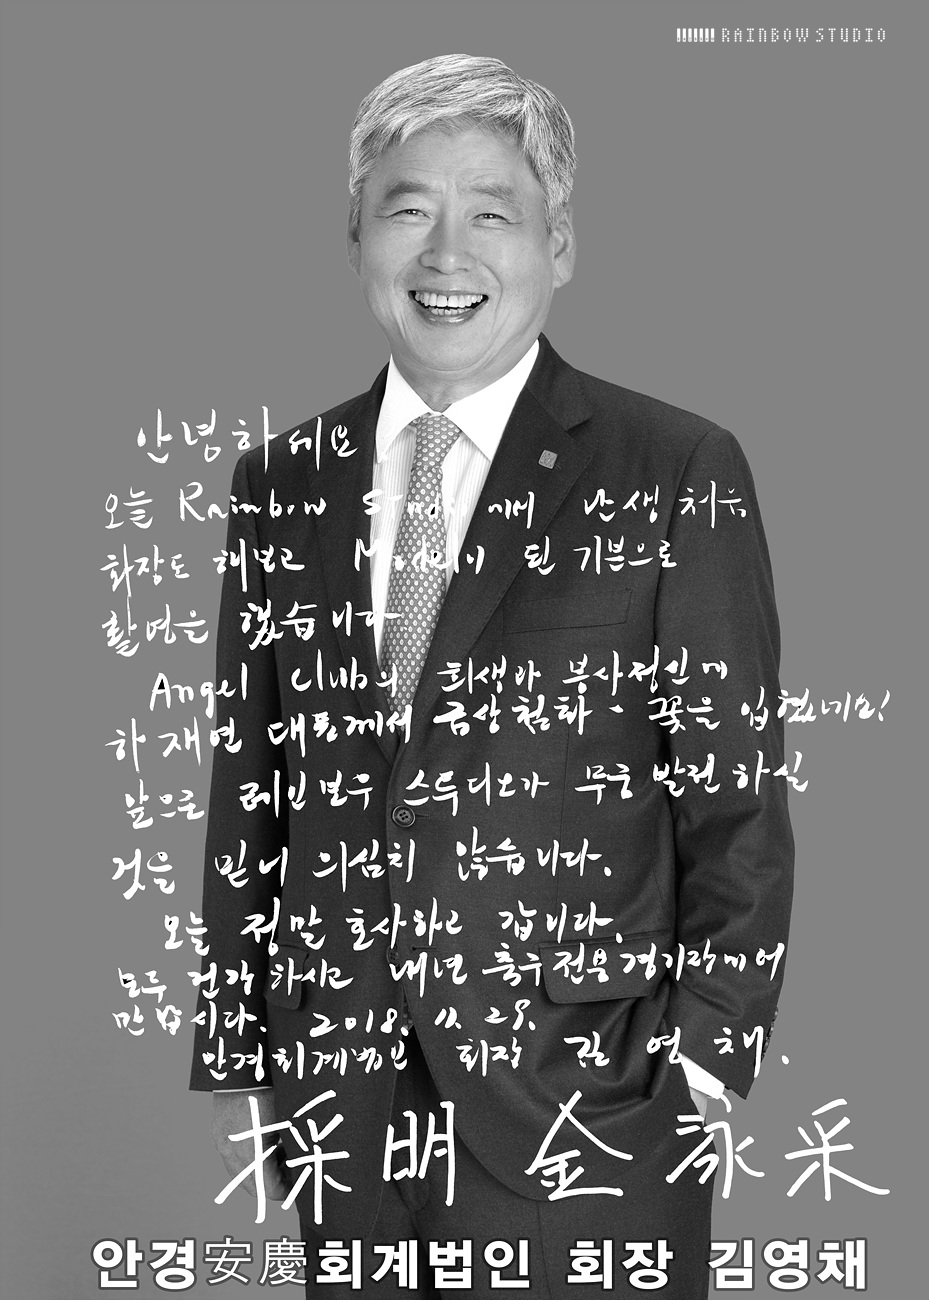 RAINBOW STUDIO
안녕하세요!
오늘 Rainbow Studio에서 난생 처음
화장도 해보고 Model이 된 기분으로
촬영을 했습니다
Angel Club의 희생과 봉사정신에
하재연 대표께서 금상첨화 - 꽃을 입혔네요!
앞으로 레인보우 스투디오가 무궁 발전 하실
것을 믿어 의심치 않습니다.
오늘 정말 호사하고 갑니다.
모두 건강하시고 내년 축구전용경기장에서
만납시다. 2018. 11. 29.
안경회계법인 회장 김영채.
採明 金泳采
안경安慶회계법인 회장 김영채